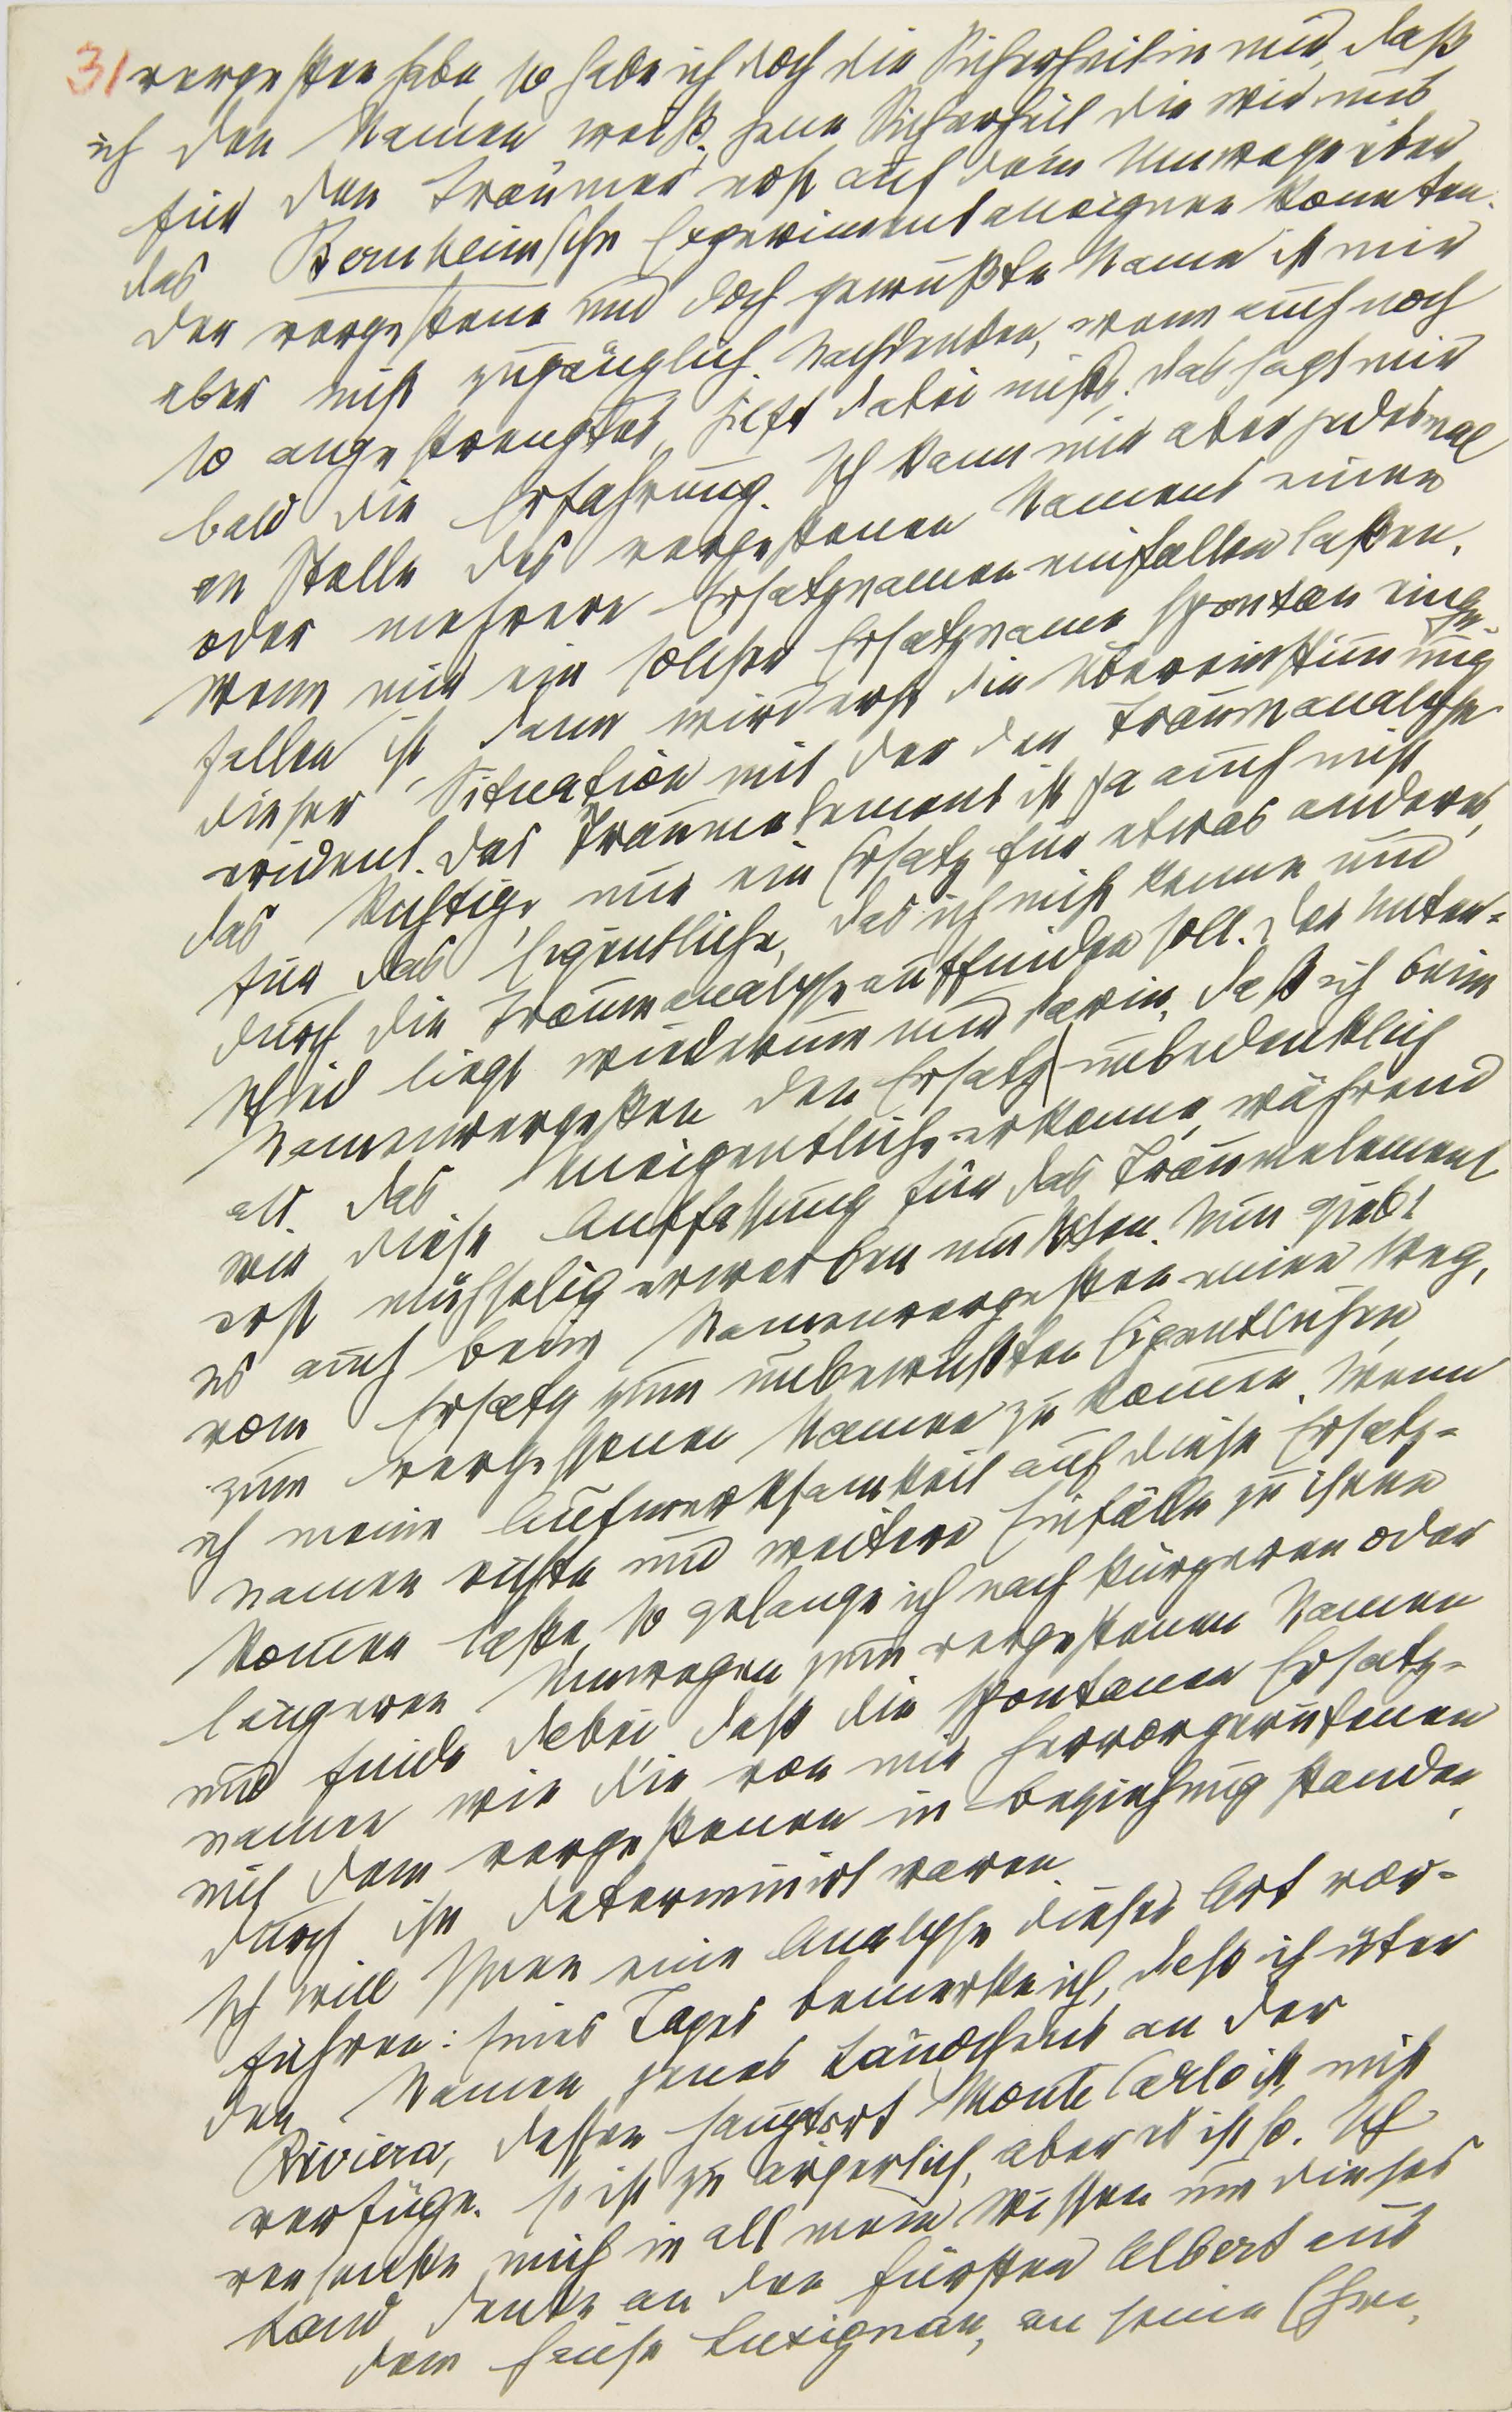 31 vergessen habe, so habe ich doch die Sicherheit in mir, daß
ich den Namen weiß, jene Sicherheit die wir uns
für den Träumer erst auf dem Umwege über
das Bernheimsche Experiment aneignen konnten.
Der vergessene und doch gewußte Name ist mir
aber nicht zugänglich. Nachdenken, wenn auch noch
so angestrengtes, hilft dabei nichts; das sagt mir
bald die Erfahrung. Ich kann mir aber jedesmal
an Stelle des vergessenen Namens einen
oder mehrere Ersatznamen einfallen laßen.
Wenn mir ein solcher Ersatzname spontan einge-
fallen ist, dann wird erst die Übereinstimmung
dieser Situation mit der der Traumanalyse
evident. Das Traumelement ist ja auch nicht
das Richtige, nur ein Ersatz für etwas anderes,
für das Eigentliche, das ich nicht kenne und
durch die Traumanalyse auffinden soll. Der Unter-
schied liegt wiederum nur darin, daß ich beim
Namenvergeßen den Ersatz unbedenklich
als das Uneigentliche erkenne, während
wir diese Auffaßung für das Traumelement
erst mühselig erwerben mußten. Nun giebt
es auch beim Namenvergeßen einen Weg,
vom Ersatz zum unbewußten Eigentlichen,
zum vergessenen Namen zu kommen. Wenn
ich meine Aufmerksamkeit auf diese Ersatz-
namen richte und weitere Einfälle zu ihnen
kommen laße, so gelange ich nach kürzeren oder
längeren Umwegen zum vergeßenen Namen
und finde dabei daß die spontanen Ersatz-
namen wie die von mir hervorgerufenen
mit dem vergeßenen in Beziehung standen,
durch ihn determinirt waren.
Ich will Ihnen eine Analyse dieser Art vor-
führen: Eines Tages bemerke ich, daß ich über
den Namen jenes Ländchens an der
Riviera, deßen Hauptort Monte Carlo ist, nicht
verfüge. Es ist zu ärgerlich, aber es ist so. Ich
versenke mich in all mein Wissen um dieses
Land, denke an den Fürsten Albert aus
dem Hause Lusignan, an seine Ehen,